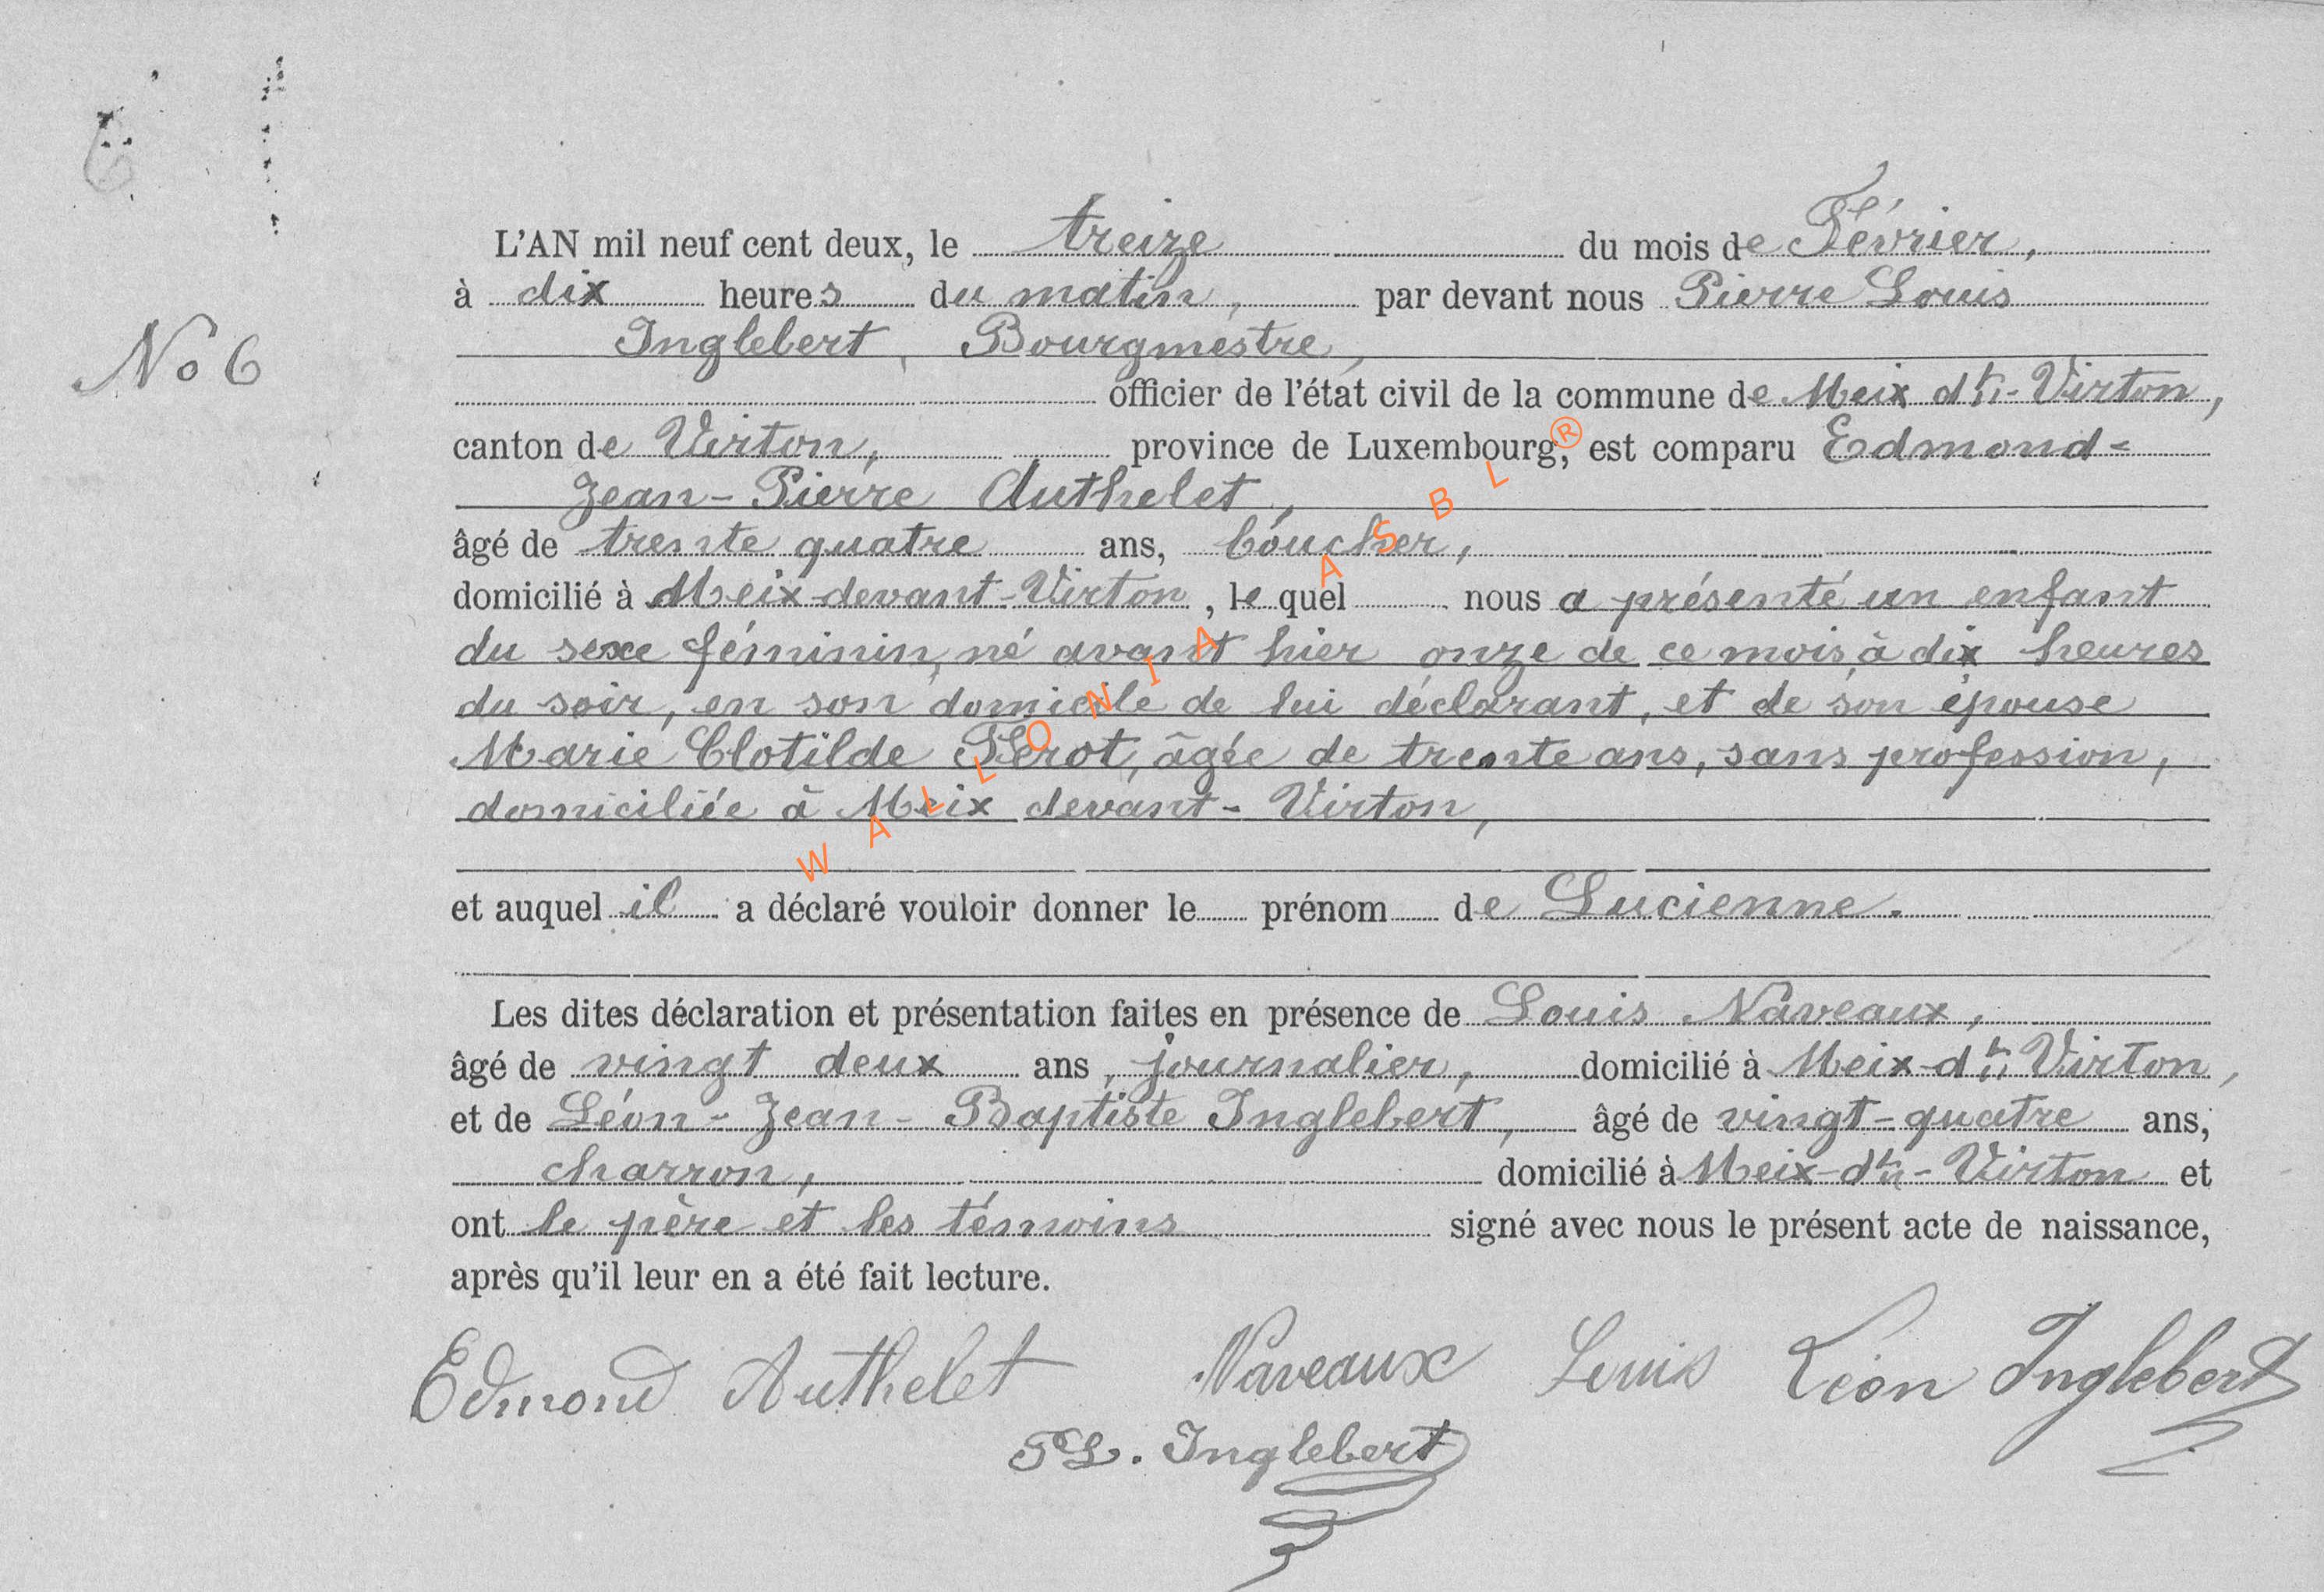 L'AN mil neuf cent deux, le treize du mois de Février,
à dix heures du matin, par devant nous Pierre Louis
No 6
Inglebert, Bourgmestre,
officier de l'état civil de la commune de Meix dt-Virton,
canton de Virton, province de Luxembourg, est comparu Edmond-
Jean-Pierre Authelet,
âgé de trente quatre ans, boucher,
domicilié à Meix-devant-Virton, le quel nous a présenté un enfant
du sexe féminin, né avant hier onze de ce mois à dix heures
du soir, en son domicile de lui déclarant, et de son épouse
Marie Clotilde, âgée de trente ans, sans profession,
domiciliée à Meix devant-Virton,
et auquel il a déclaré vouloir donner le prénom de Lucienne.
Les dites déclaration et présentation faites en présence de Louis Naveaux,
âgé de vingt deux ans, journalier, domicilié à Meix-dt Virton,
et de Léon-Jean-Baptiste Inglebert, âgé de vingt-quatre ans,
charron, domicilié à Meix-dt-Virton et
ont le père et les témoins signé avec nous le présent acte de naissance,
après qu'il leur en a été fait lecture.
Edmond Authelet Naveaux Louis Léon Inglebert
PL. Inglebert
WALLONIA ASBL®